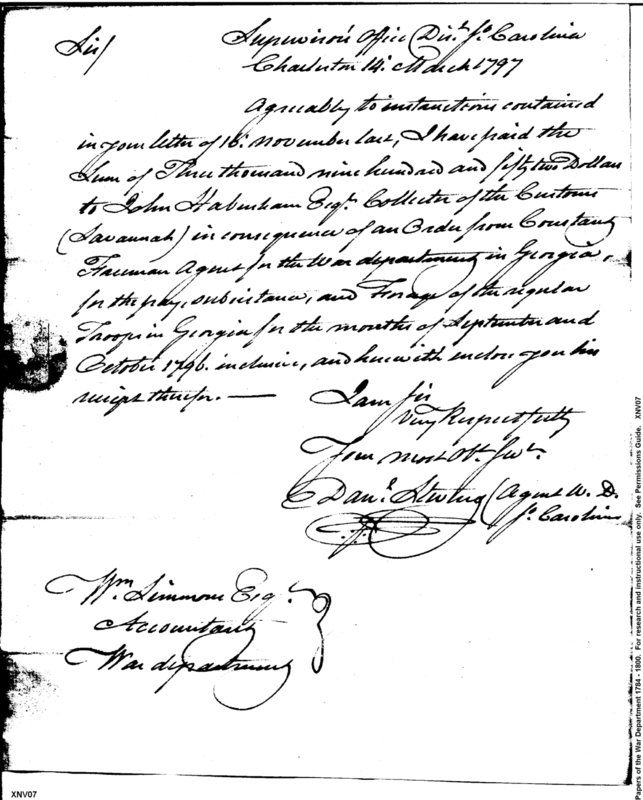 Supervisor's Office Dist. So. Carolina
Sir/
Charleston 14. March 1797
Agreeably to instructions contained
in your letter of 16. November last, I have paid the
Sum of Three thousand nine hundred and fifty two Dollars
to John Habersham Esqr. Collector of the Customs
(Savannah) in consequence of an Order from Constant
Freeman Agent for the War department in Georgia,
for the pay, subsistance, and Forage of the regular
Troops in Georgia for the months of September and
October 1796. inclusive, and herewith enclose you his
receipt therefor. —
I am Sir
Very Respectfully
Your most Obt. Servt.
Danl. Stevens Agent W. D.
So. Carolina
Wm. Simmons Esqr.
Accountant
War department
XNV07
Papers of the War Department 1784 - 1800. For research and instructional use only. See Permissions Guide. XNV07